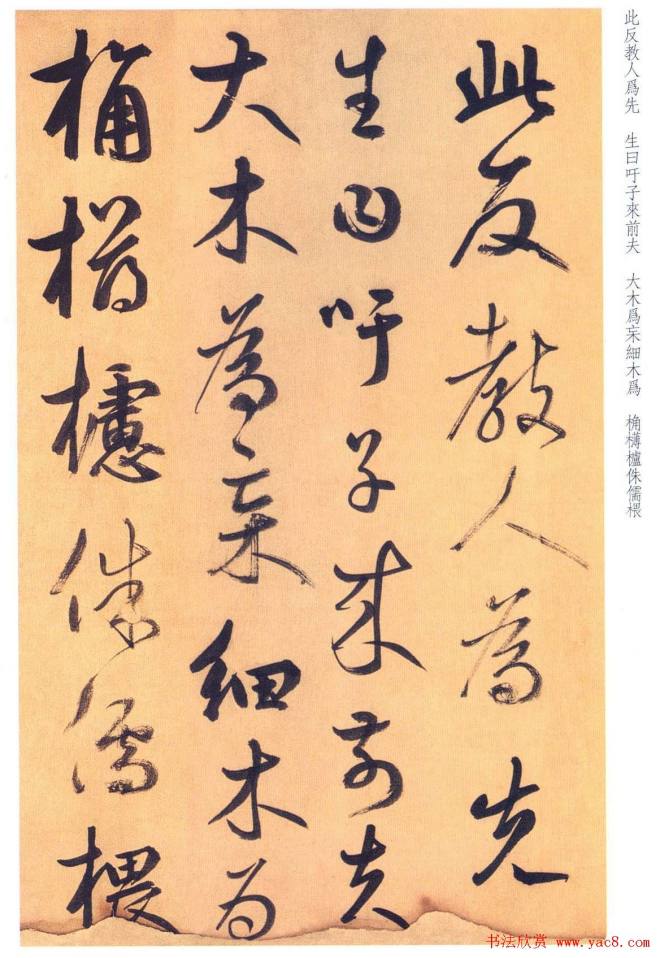 此反教人爲先　生曰吁子來前夫　大木爲杗細木爲　桷欂櫨侏儒椳
此反教人為先
生曰吁子來前夫
大木為杗細木為
桷欂櫨侏儒椳
书法欣赏 www.yac8.com